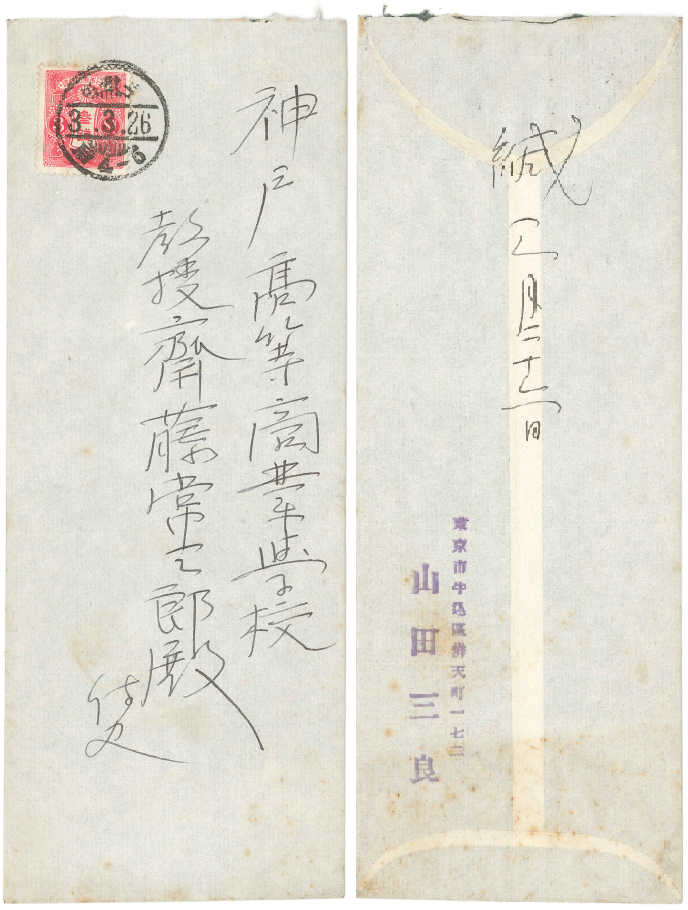 3.3.26
神戸高等商業学校
教授齋藤常三郎殿
侍史
緘 三月二十六日
東京市牛込區辨天町一七二
山田三良